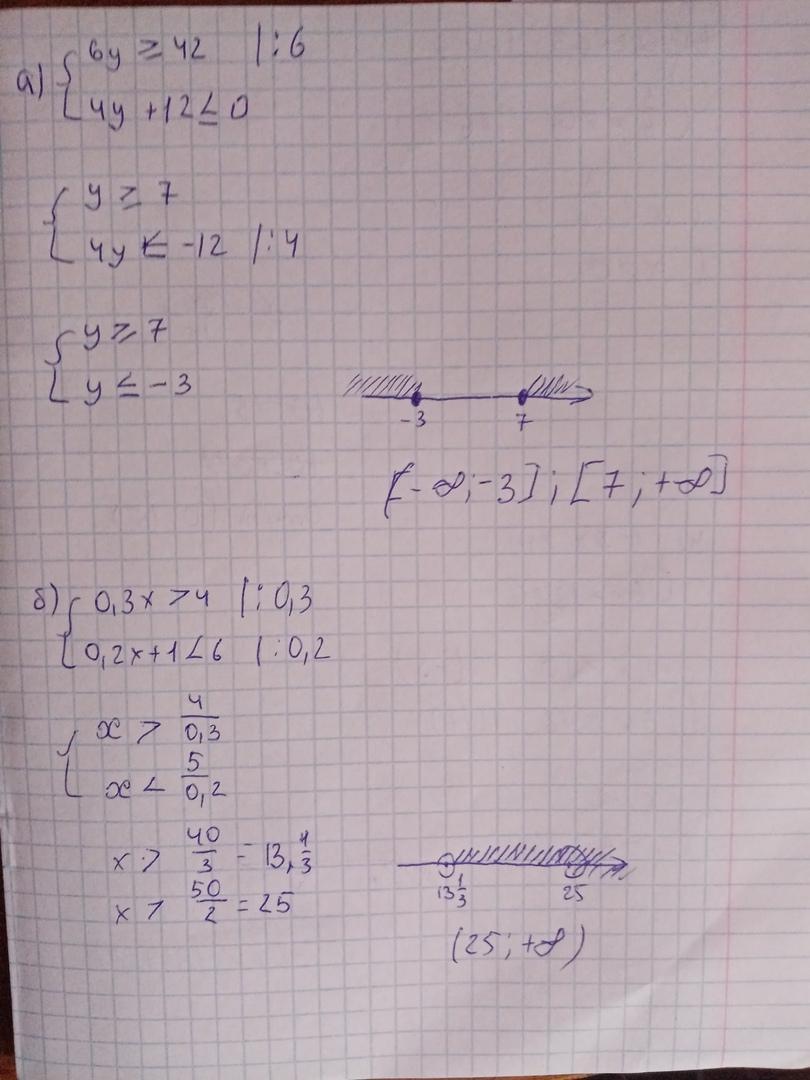 а) { 6y ≥ 42 |:6
4y + 12 ≤ 0
{ y ≥ 7
4y ≤ -12 |:4
{ y ≥ 7
y ≤ -3
-3 7
[-∞; -3]; [7; +∞]
б) { 0,3x > 4 |:0,3
0,2x + 1 < 6 |:0,2
{ x > 4/0,3
x < 5/0,2
x > 40/3 = 13,1/3
x > 50/2 = 25
13 1/3 25
(25; +∞)